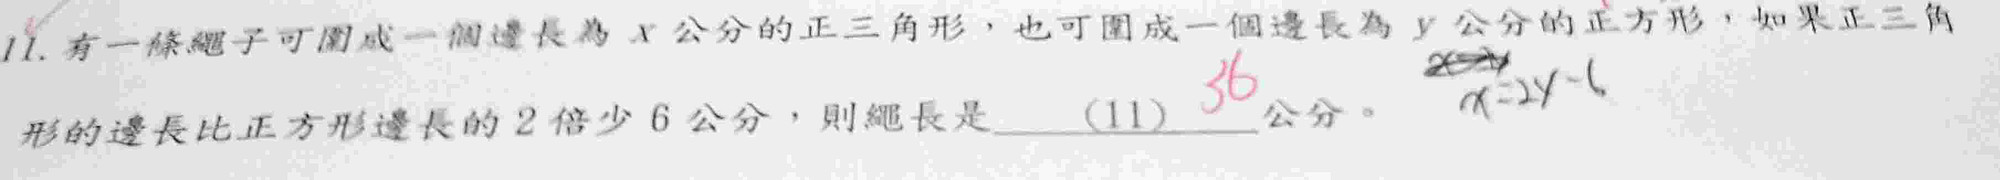 11. 有一條繩子可圍成一個邊長為 x 公分的正三角形，也可圍成一個邊長為 y 公分的正方形，如果正三角
形的邊長比正方形邊長的 2 倍少 6 公分，則繩長是 (11) 36 公分。
x=2y-6